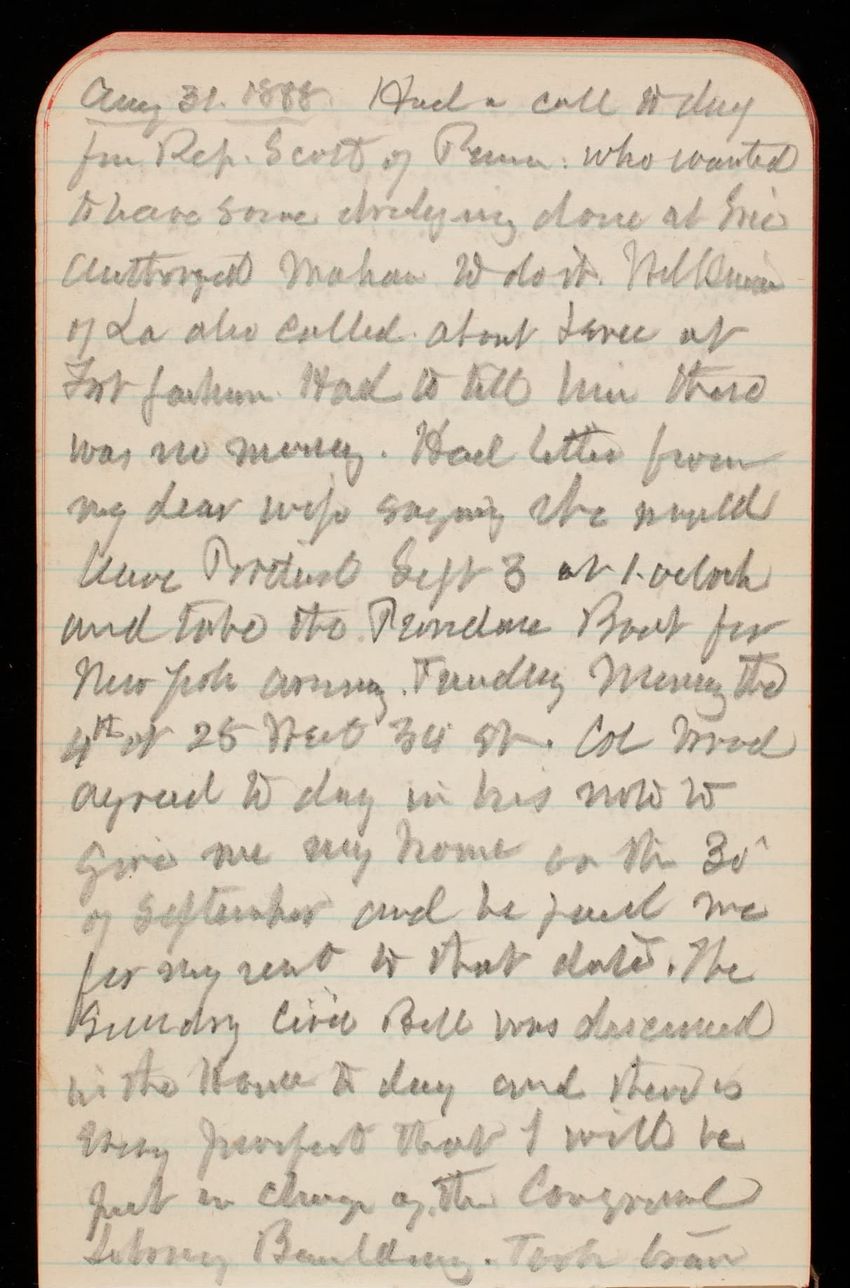 Aug 31. 1888. Had a call to day
from Rep. Scott of Penn. who wanted
to have some dredging done at Erie
Authorized Mahan to do it. Wilkinson
of La also called about Levee at
Fort Jackson Had to tell him there
was no money. Had letter from
my dear wife saying she would
leave Portland Sept 3 at 1 oclock
and take the Providence Boat for
New York arriving Tuesday Morning the
4th at 25 West 34 st. Col Wood
agreed to day in his note to
give me my home on the 30
of September and he paid me
for my rent to that date. The
Sundry Civil Bill was discussed
in the House to day and there is
every prospect that I will be
put in charge of the Congressional
Library Building. Took